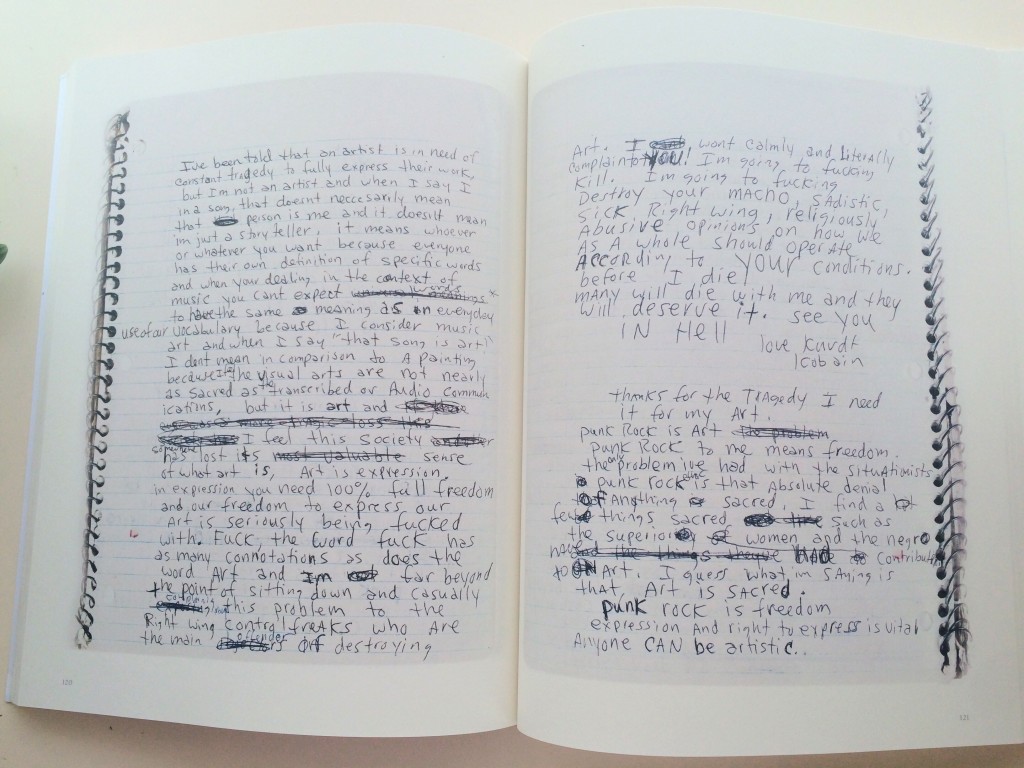 Ive been told that an artist is in need of
constant tragedy to fully express their work,
but I'm not an artist and when I say I
in a song, that doesnt neccesarily mean
that person is me and it doesnt mean
im just a story teller, it means whoever
or whatever you want because everyone
has their own definition of specific words
and when your dealing in the context of
music you cant expect words*
to have the same meaning as in everyday
use of our vocabulary because I consider music
art and when I say "that song is art"
I dont mean in comparison to a painting
because the visual arts are not nearly
as sacred as the transcribed or Audio Commun
ications, but it is art and
I feel this society
somewhere
has lost its most valuable sense
of what art is, Art is expression,
in expression you need 100% full freedom
and our freedom to express our
Art is seriously being fucked
with. Fuck, the word fuck has
as many connotations as does the
word Art and Im far beyond
the point of sitting down and casually
complaining this problem to the
Right wing control freaks who Are
the main offenders of destroying
120
Art. I wont calmly and Literally
complain to YOU! I'm going to fucking
kill. I'm going to fucking
Destroy your macho, sadistic,
sick Right wing, religiously
Abusive opinions on how we
As A whole should operate
According to YOUR conditions.
before I die
many will die with me and they
will deserve it. see you
IN Hell
love Kurdt
Kobain
thanks for the Tragedy I need
it for my Art.
punk Rock is Art the problem
punk Rock to me means freedom.
the only problem ive had with the situationists
punk rock ethic is that Absolute denial
of Anything sacred. I find a
few things sacred such as
the superiority of women and the negro
contribution
to Art. I guess what im saying is
that Art is sacred.
punk rock is freedom
expression And right to express is vital
Anyone CAN be artistic..
121